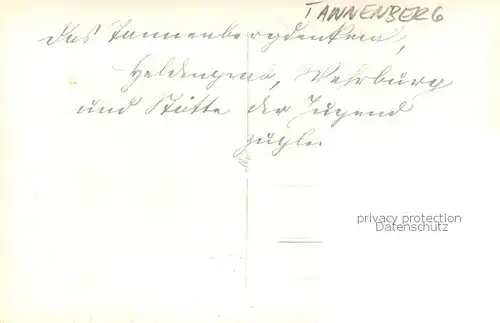 TANNENBERG
Das Tannenbergdenkmal,
Heldengrab, Wehrburg
und Stätte der Jugend
zugle
privacy protection
Datenschutz